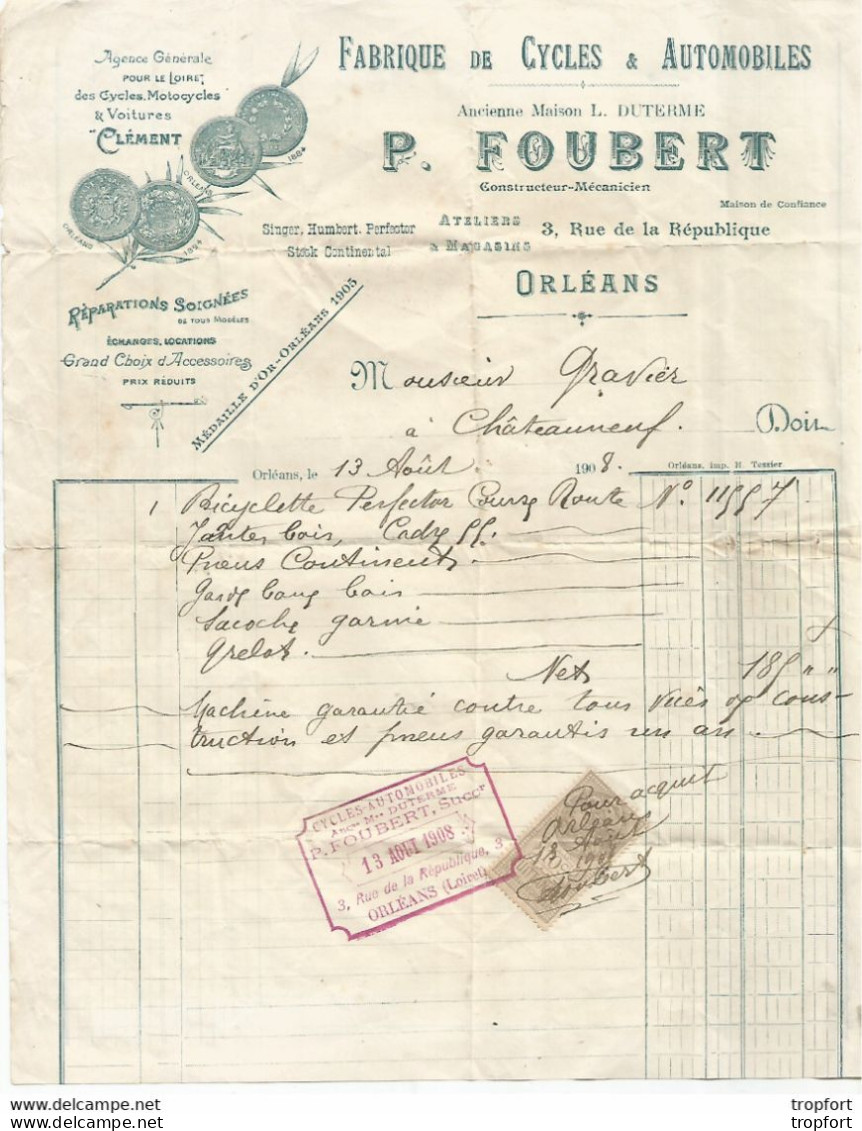 Agence Générale
POUR LE LOIRET
des Cycles, Motocycles
& Voitures
"CLÉMENT"
ORLÉANS
1884
ORLÉANS
1894
FABRIQUE DE CYCLES & AUTOMOBILES
Ancienne Maison L. DUTERME
P. FOUBERT
Constructeur-Mécanicien
Maison de Confiance
Singer, Humbert, Perfector
Stock Continental
ATELIERS
& MAGASINS
3, Rue de la République
ORLÉANS
RÉPARATIONS SOIGNÉES
DE TOUS MODÈLES
ÉCHANGES, LOCATIONS
Grand Choix d'Accessoires
PRIX RÉDUITS
MÉDAILLE D'OR-ORLÉANS 1905
Monsieur Gravier
à Châteauneuf. Doit
Orléans, le 13 Août 1908.
Orléans, imp. H. Tessier
1 Bicyclette Perfector Course Route N° 11557
Jantes bois, Cadre 55.
Pneus Continent.
Garde boue bois
Sacoche garnie
Grelot.
Net 185 " "
Machine garantie contre tous vices de cons-
truction et pneus garantis un an.
CYCLES-AUTOMOBILES
ANCne Mon DUTERME
P. FOUBERT, Succr
13 AOUT 1908
3, Rue de la République, 3
ORLÉANS (Loiret)
Pour acquit
Orléans
13 Août
1908
Foubert
10-11-2023 Delcampe.net
10-11-2023 Delcampe.net
tropfort
tropfort